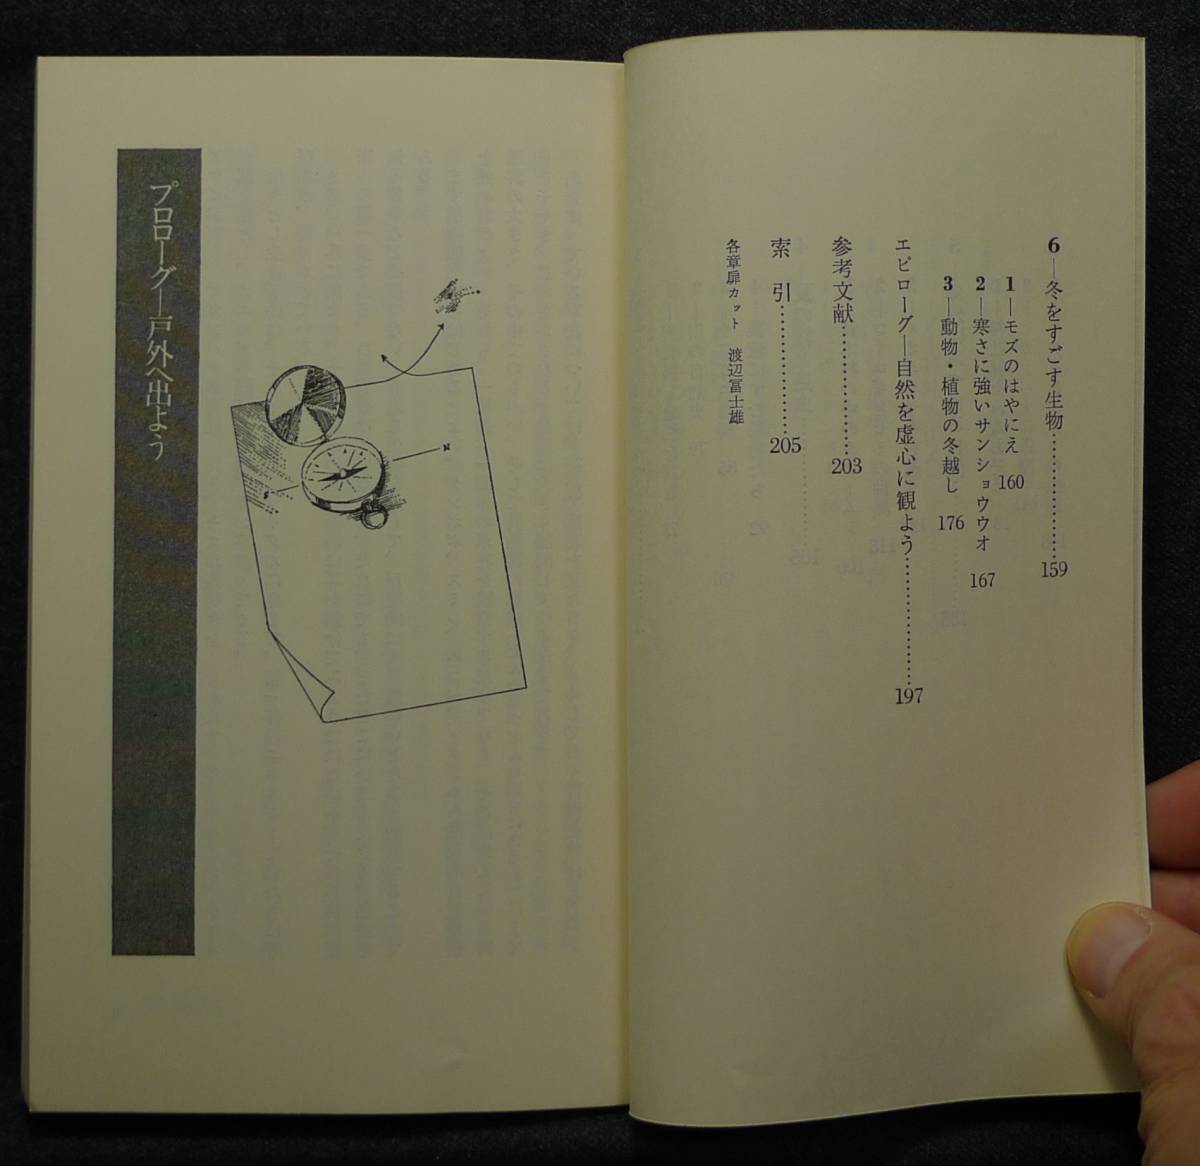 6―冬をすごす生物………………159
1―モズのはやにえ 160
2―寒さに強いサンショウウオ 167
3―動物・植物の冬越し 176
エピローグ―自然を虚心に観よう………………197
参考文献………………203
索 引………………205
各章扉カット 渡辺冨士雄
プロローグ―戸外へ出よう
N
S